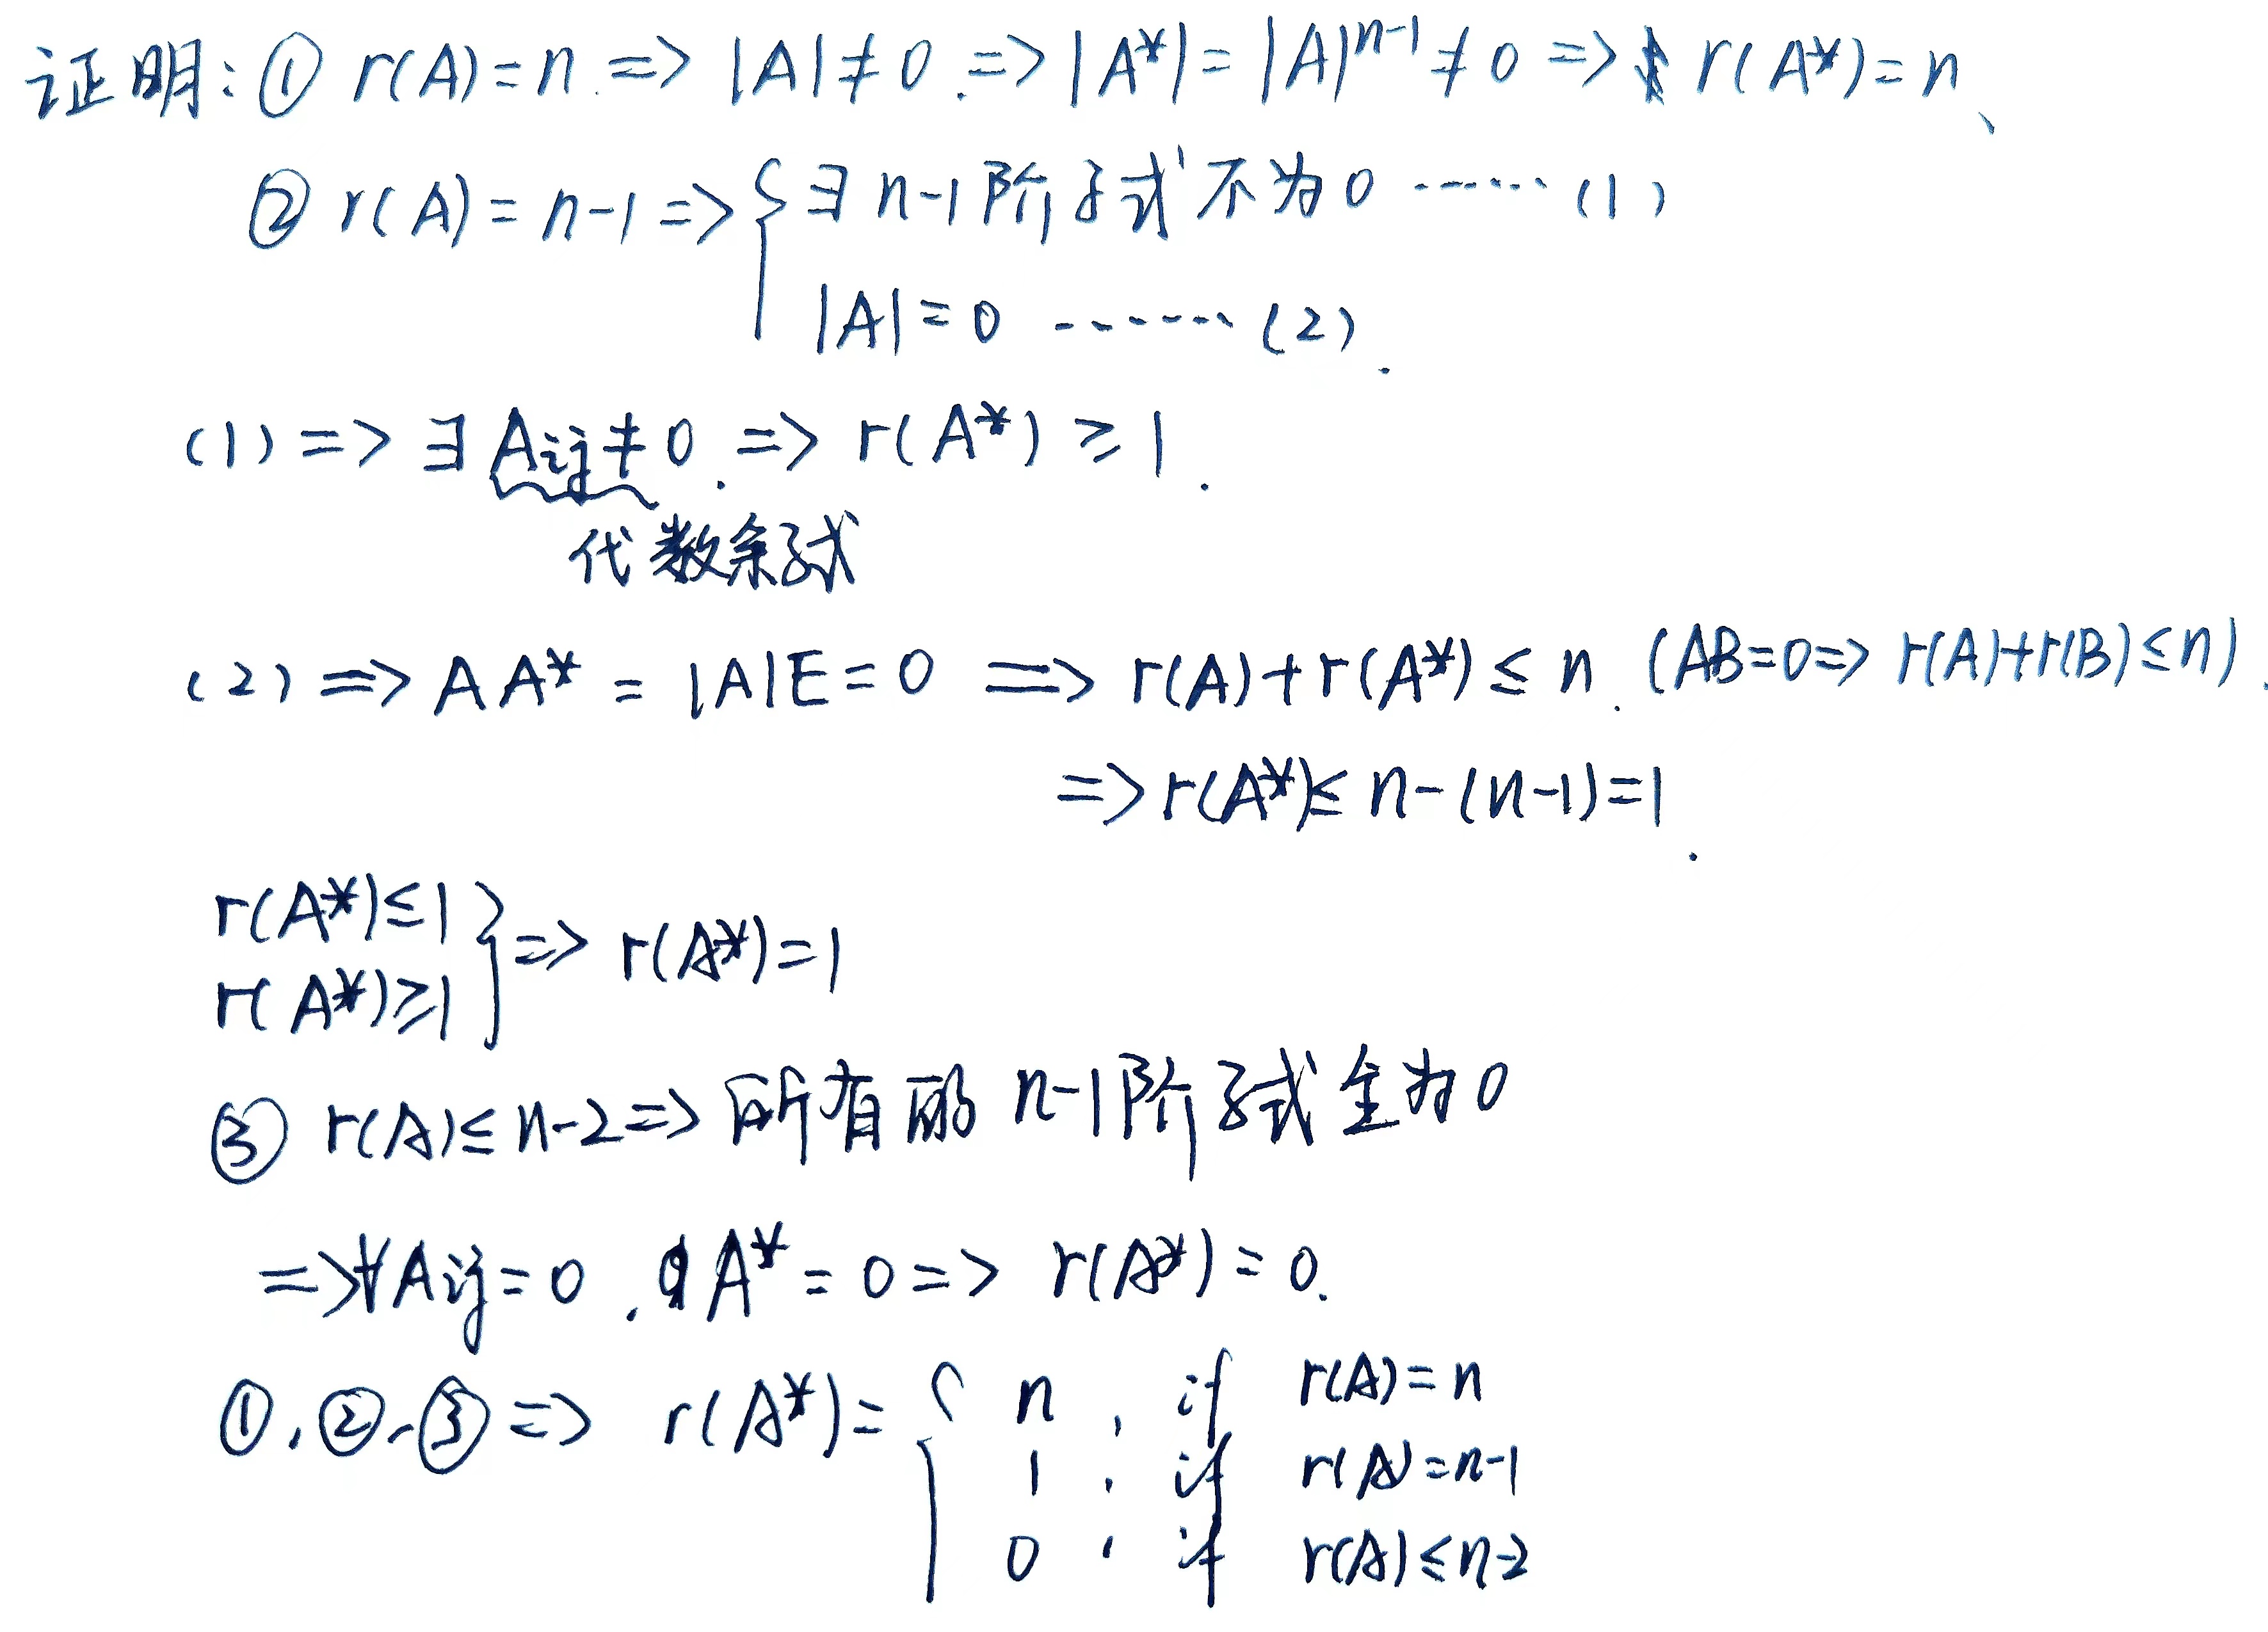 证明: ① r(A)=n. => |A|≠0. => |A*|=|A|ⁿ⁻¹≠0 => r(A*)=n、
② r(A)=n-1 => { ∃ n-1阶子式不为0 ······ (1)
|A|=0 ······· (2).
(1) => ∃ Aij≠0. => r(A*) ≥ 1.
代数余子式
(2) => AA* = |A|E = 0 => r(A)+r(A*) ≤ n. (AB=0 => r(A)+r(B)≤n).
=> r(A*) ≤ n-(n-1)=1.
r(A*)≤1
r(A*)≥1 } => r(A*)=1
③ r(A)≤n-2 => 所有的 n-1阶子式全为0
=> ∀Aij=0. A*=0 => r(A*)=0.
①、②、③ => r(A*)= { n , if r(A)=n
1 , if r(A)=n-1
0 , if r(A)≤n-2